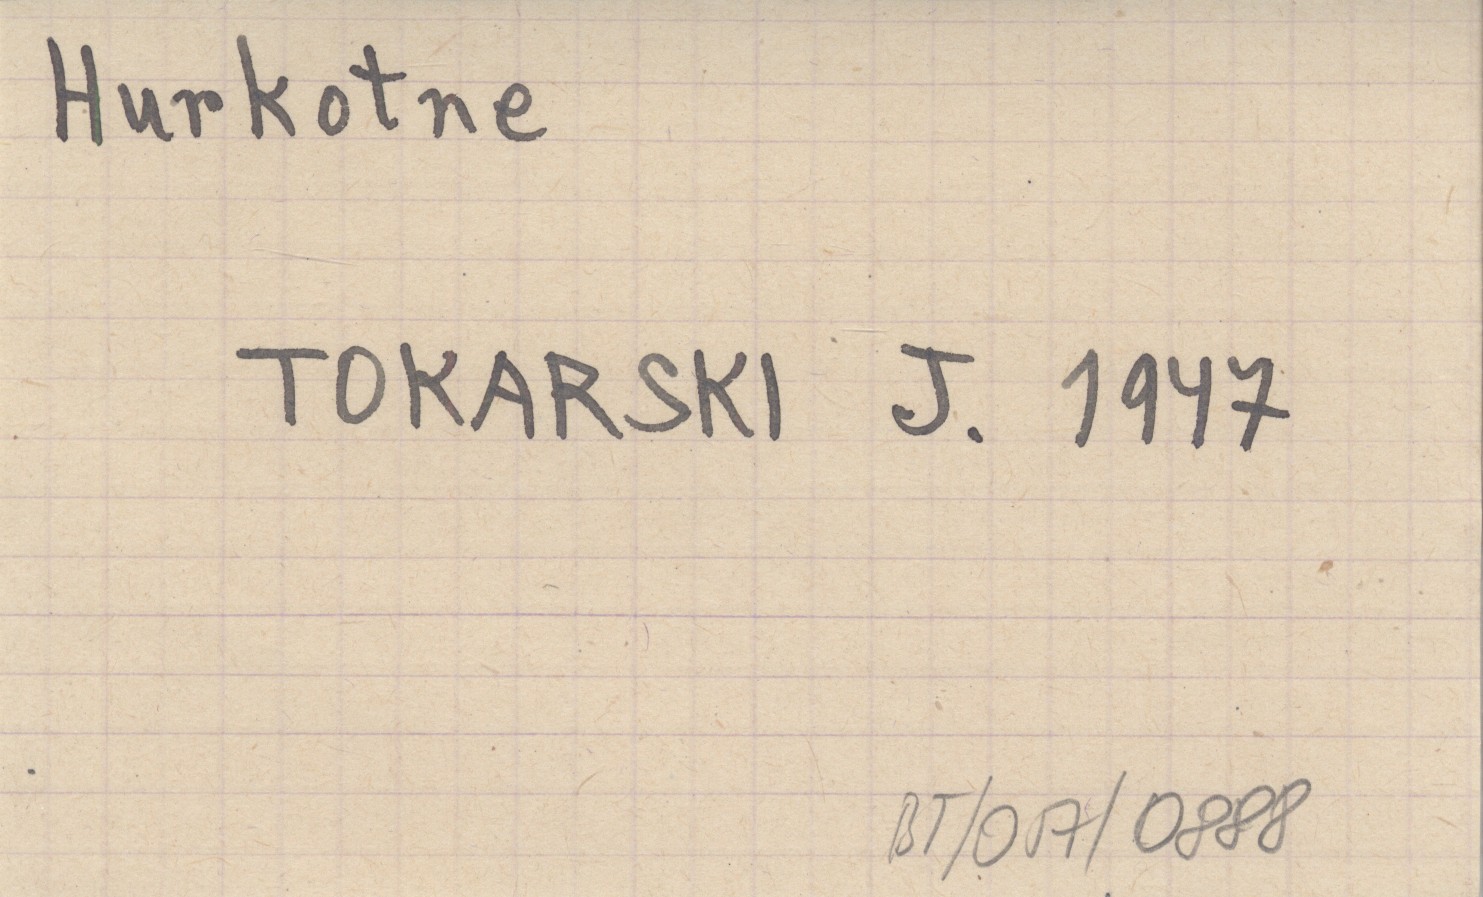 Hurkotne
TOKARSKI J. 1947
BT/017/0888